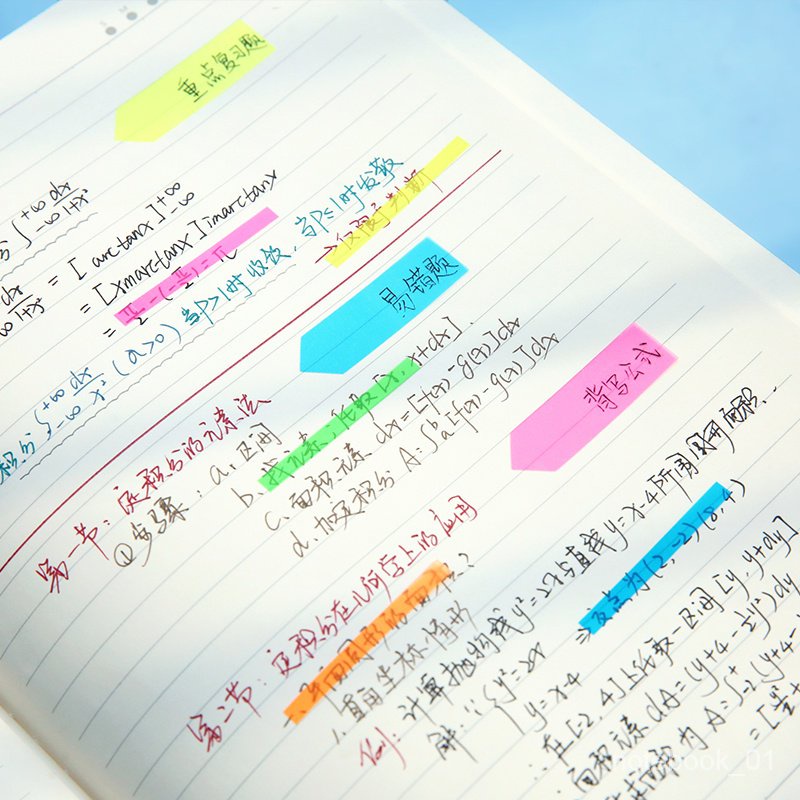 重点复习题
∫₋∞⁺∞ dx/1+x²
dx/1+x² = [arctanx]₋∞⁺∞
= [xmarctanx]imarctanx
= π/2-(-π/2)=π
积分∫₋∞⁺∞ dx/x² (a>0) 当P>1时收敛, 当P≤1时发散
→仅限于判断
易错题
第一节：定积分的元素法
①步骤：a. 区间
b. 找元素；任取[x, x+dx].
c. 面积元素 dx=[f(x)-g(x)]dx
d. 加定积分 A:∫ᵇa[f(x)-g(x)]dx
背写公式
第二节：定积分在几何学上的应用
→平面图形的面积
1. 直角坐标情形
例：计算抛物线y²=2x与直线y=x-4所围图形面积
解：∵{y²=2x
y=x-4
⇒交点为(2,-2)(8,4)
∴在[-2,4]上任取一区间[y, y+dy]
∴面积元素 dA=(y+4-½y²)dy
为 A=∫-2(y+4-
=[y²/
notebook_01